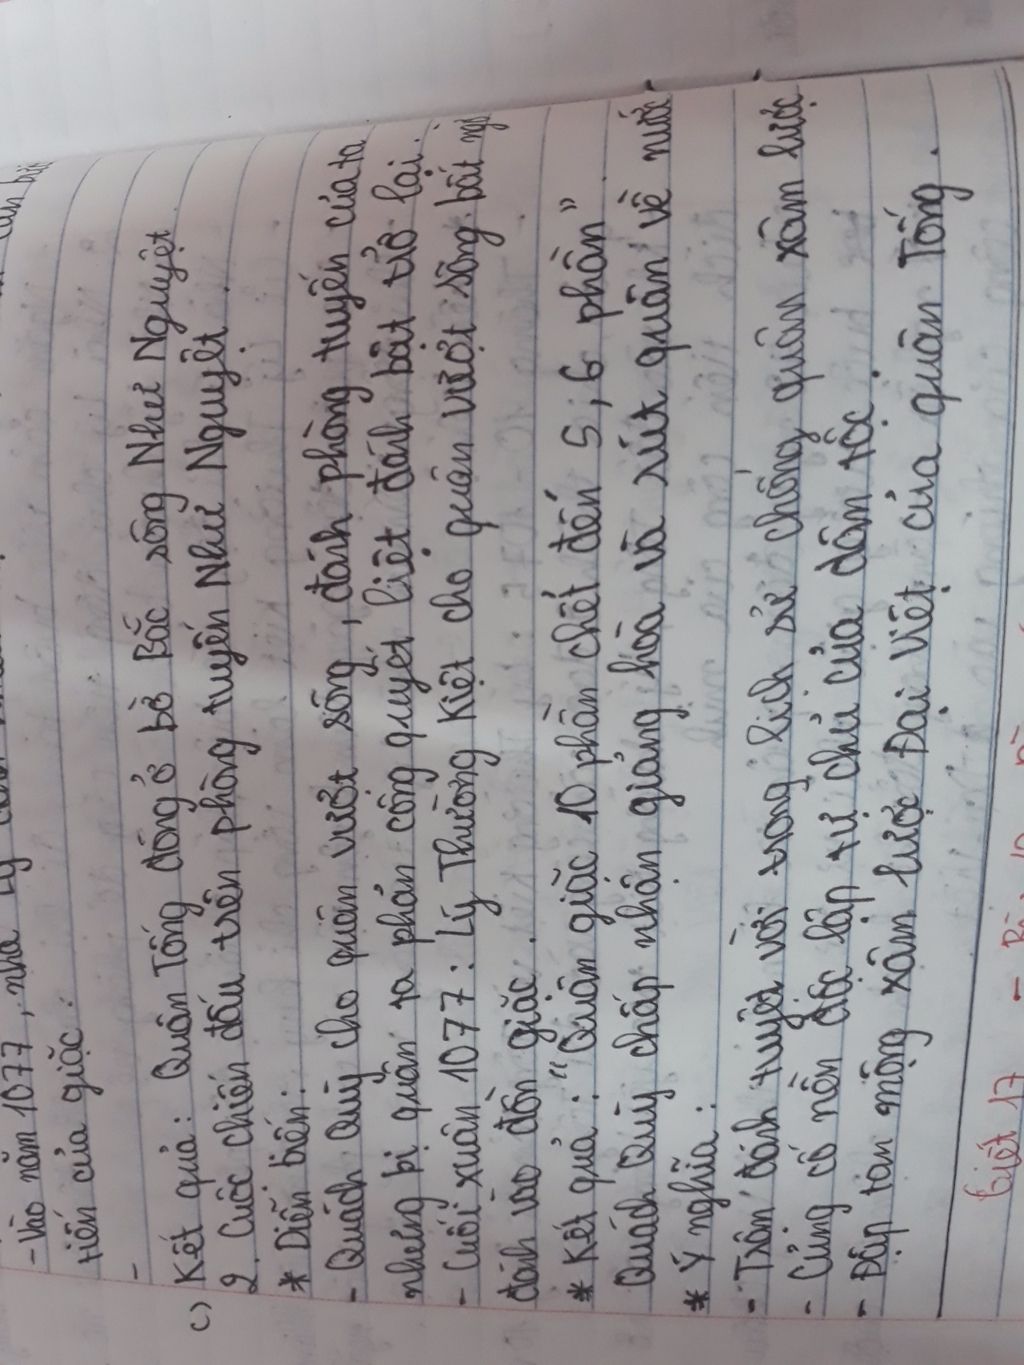 - Vào năm 1077, nhà Lý
tiến của giặc.
-
c) Kết quả: Quân Tống đóng ở bờ Bắc sông Như Nguyệt
2. Cuộc chiến đấu trên phòng tuyến Như Nguyệt
* Diễn biến:
- Quách Quỳ cho quân vượt sông, đánh phòng tuyến của ta
nhưng bị quân ta phản công quyết liệt đánh bật trở lại.
- Cuối xuân 1077: Lý Thường Kiệt cho quân vượt sông bất ngờ
đánh vào đồn giặc.
* Kết quả: "Quân giặc 10 phần chết đến 5, 6 phần"
Quách Quỳ chấp nhận giảng hòa và rút quân về nước
* Ý nghĩa:
- Trận đánh tuyệt vời trong lịch sử chống quân xâm lược
- Củng cố nền độc lập tự chủ của dân tộc.
- Đập tan mộng xâm lược Đại Việt của quân Tống.
Tiết 17 -